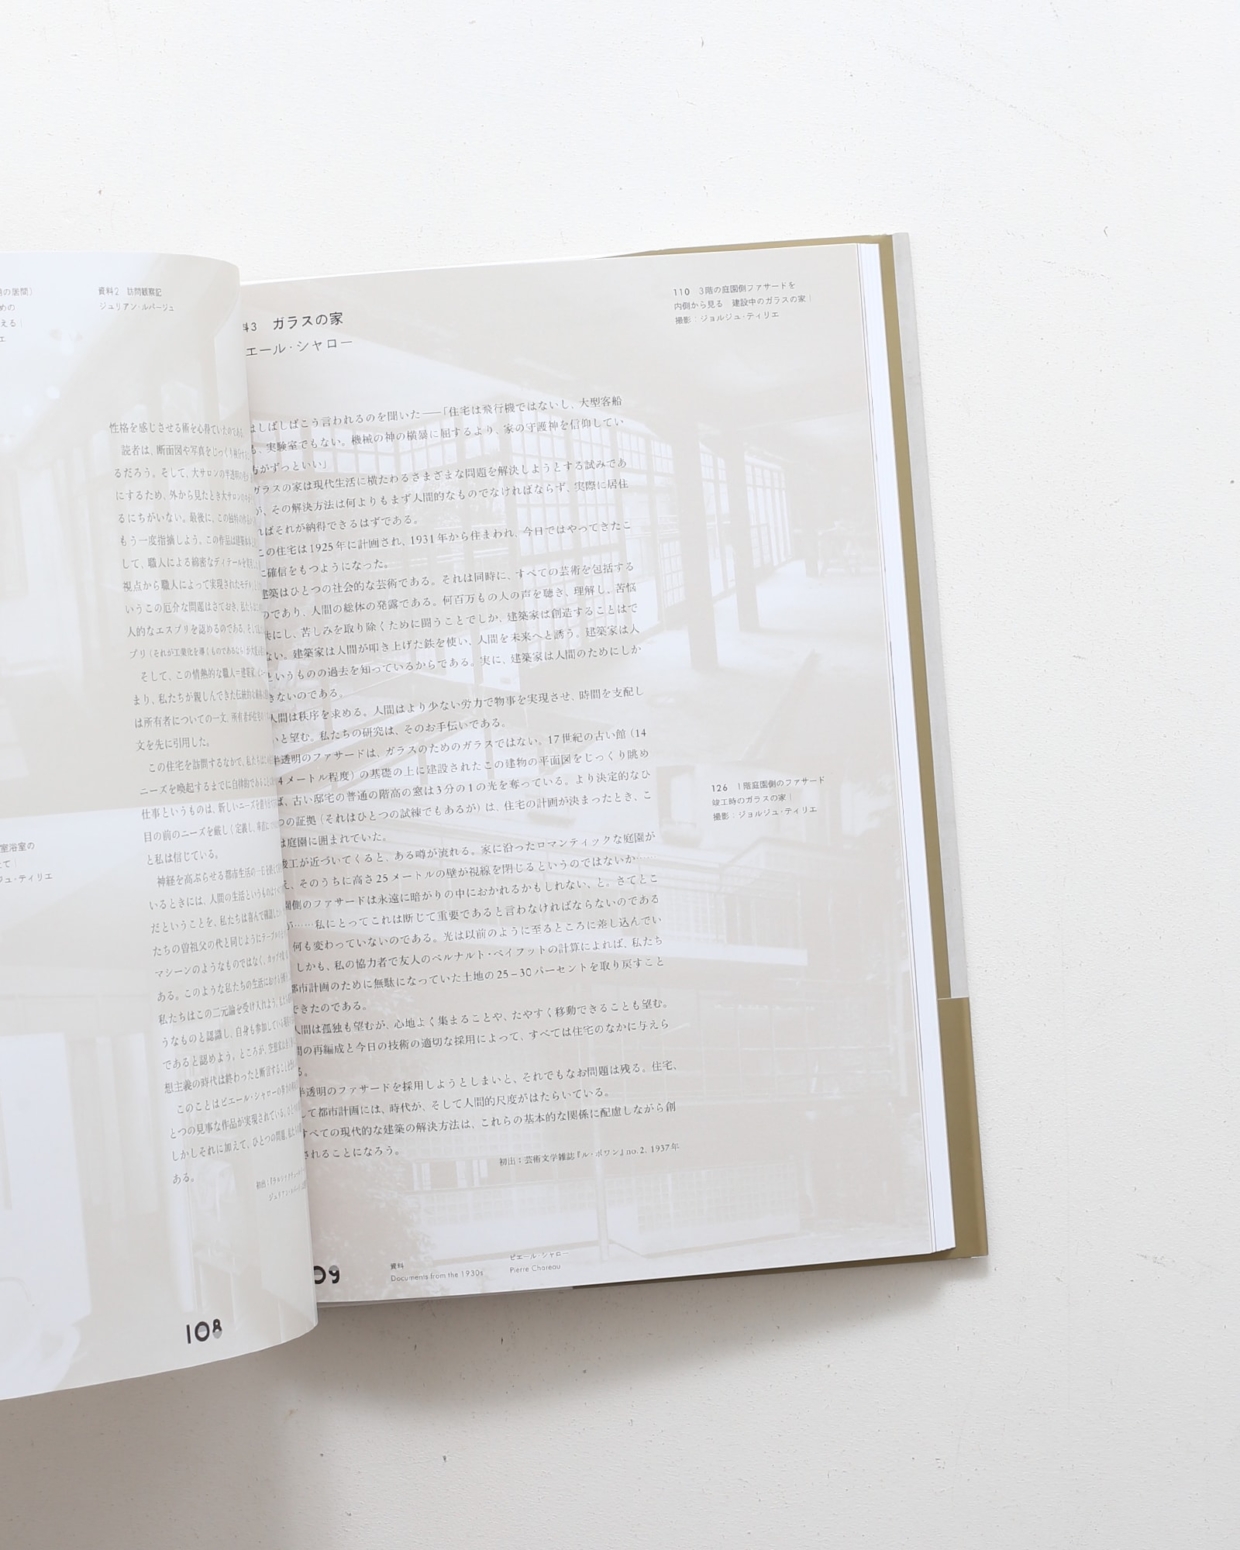 資料2 訪問観察記
ジュリアン・ルパージュ
性格を感じさせる術を心得ていたのである。
読者は、断面図や写真をじっくり
るだろう。そして、大サロンの
にするため、外から見たとき大サロンの
るにちがいない。最後に、この独特の
もう一度指摘しよう。この作品は
して、職人による綿密なディテールを
視点から職人によって実現されたモデ
いうこの厄介な問題はさておき、私たちは
人的なエスプリを認めるのである。
プリ(それが工業化を導くものであるにせよ
そして、この情熱的な職人=建築家
まり、私たちが親しんできた伝統的な
は所有者についての一文、所有者が
文を先に引用した。
この住宅を訪問するなかで、私たちは
ニーズを喚起するまでに自律的である
仕事というものは、新しいニーズを
目の前のニーズを厳し
と私は信じている。
神経を高ぶらせる都市生活の一日を
いるときには、人間の生活というものは
だということを、私たちは喜んで確認し
たちの曽祖父の代と同じようにテーブル
マシーンのようなものではなく、カップ
ある。このような私たちの生活における
私たちはこの二元論を受け入れよう。
うなものと認識し、自身も参加している
であると認めよう。ところが、空想
想主義の時代は終わったと断言することが
このことはピエール・シャローの
とつの見事な作品が実現されている。
しかしそれに加えて、ひとつの問題、
ある。
108
3 ガラスの家
エール・シャロー
はしばしばこう言われるのを聞いた——「住宅は飛行機ではないし、大型客船
実験室でもない。機械の神の横暴に屈するより、家の守護神を信仰してい
がずっといい」
ガラスの家は現代生活に横たわるさまざまな問題を解決しようとする試みであ
が、その解決方法は何よりもまず人間的なものでなければならず、実際に居住
ばそれが納得できるはずである。
この住宅は1925年に計画され、1931年から住まわれ、今日ではやってきたこ
に確信をもつようになった。
建築はひとつの社会的な芸術である。それは同時に、すべての芸術を包括する
のであり、人間の総体の発露である。何百万もの人の声を聴き、理解し、苦悩
共にし、苦しみを取り除くために闘うことでしか、建築家は創造することはで
ない。建築家は人間が叩き上げた鉄を使い、人間を未来へと誘う。建築家は人
というものの過去を知っているからである。実に、建築家は人間のためにしか
きないのである。
人間は秩序を求める。人間はより少ない労力で物事を実現させ、時間を支配し
いと望む。私たちの研究は、そのお手伝いである。
半透明のファサードは、ガラスのためのガラスではない。17世紀の古い館(14
4メートル程度)の基礎の上に建設されたこの建物の平面図をじっくり眺め
ば、古い邸宅の普通の階高の窓は3分の1の光を奪っている。より決定的なひ
つの証拠(それはひとつの試練でもあるが)は、住宅の計画が決まったとき、こ
は庭園に囲まれていた。
竣工が近づいてくると、ある噂が流れる。家に沿ったロマンティックな庭園が
え、そのうちに高さ25メートルの壁が視線を閉じるというのではないか……
園側のファサードは永遠に暗がりの中におかれるかもしれない、と。さてとこ
が……私にとってこれは断じて重要であると言わなければならないのである
何も変わっていないのである。光は以前のように至るところに差し込んでい
しかも、私の協力者で友人のベルナルト・ベイフットの計算によれば、私たち
都市計画のために無駄になっていた土地の25–30パーセントを取り戻すこと
できたのである。
人間は孤独も望むが、心地よく集まることや、たやすく移動できることも望む。
間の再編成と今日の技術の適切な採用によって、すべては住宅のなかに与えら
る。
半透明のファサードを採用しようとしまいと、それでもなお問題は残る。住宅、
して都市計画には、時代が、そして人間的尺度がはたらいている。
すべての現代的な建築の解決方法は、これらの基本的な関係に配慮しながら創
されることになろう。
初出:芸術文学雑誌『ル・ポワン』no.2, 1937年
110 3階の庭園側ファサードを
内側から見る 建設中のガラスの家|
撮影:ジョルジュ・ティリエ
126 1階庭園側のファサード
竣工時のガラスの家|
撮影:ジョルジュ・ティリエ
09
資料
Documents from the 1930s
ピエール・シャロー
Pierre Chareau